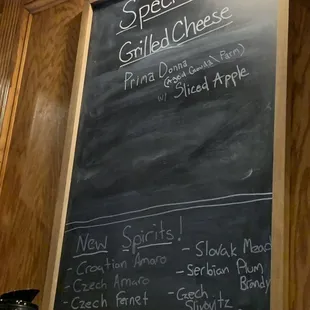 Grilled Cheese
Prima Donna
(Aged Gouda \ Farm)
w/ Sliced Apple
New Spirits!
- Croation Amaro
- Czech Amaro
- Czech Fernet
- Slovak Mead
- Serbian Plum
Brandy
- Czech
Slivovitz